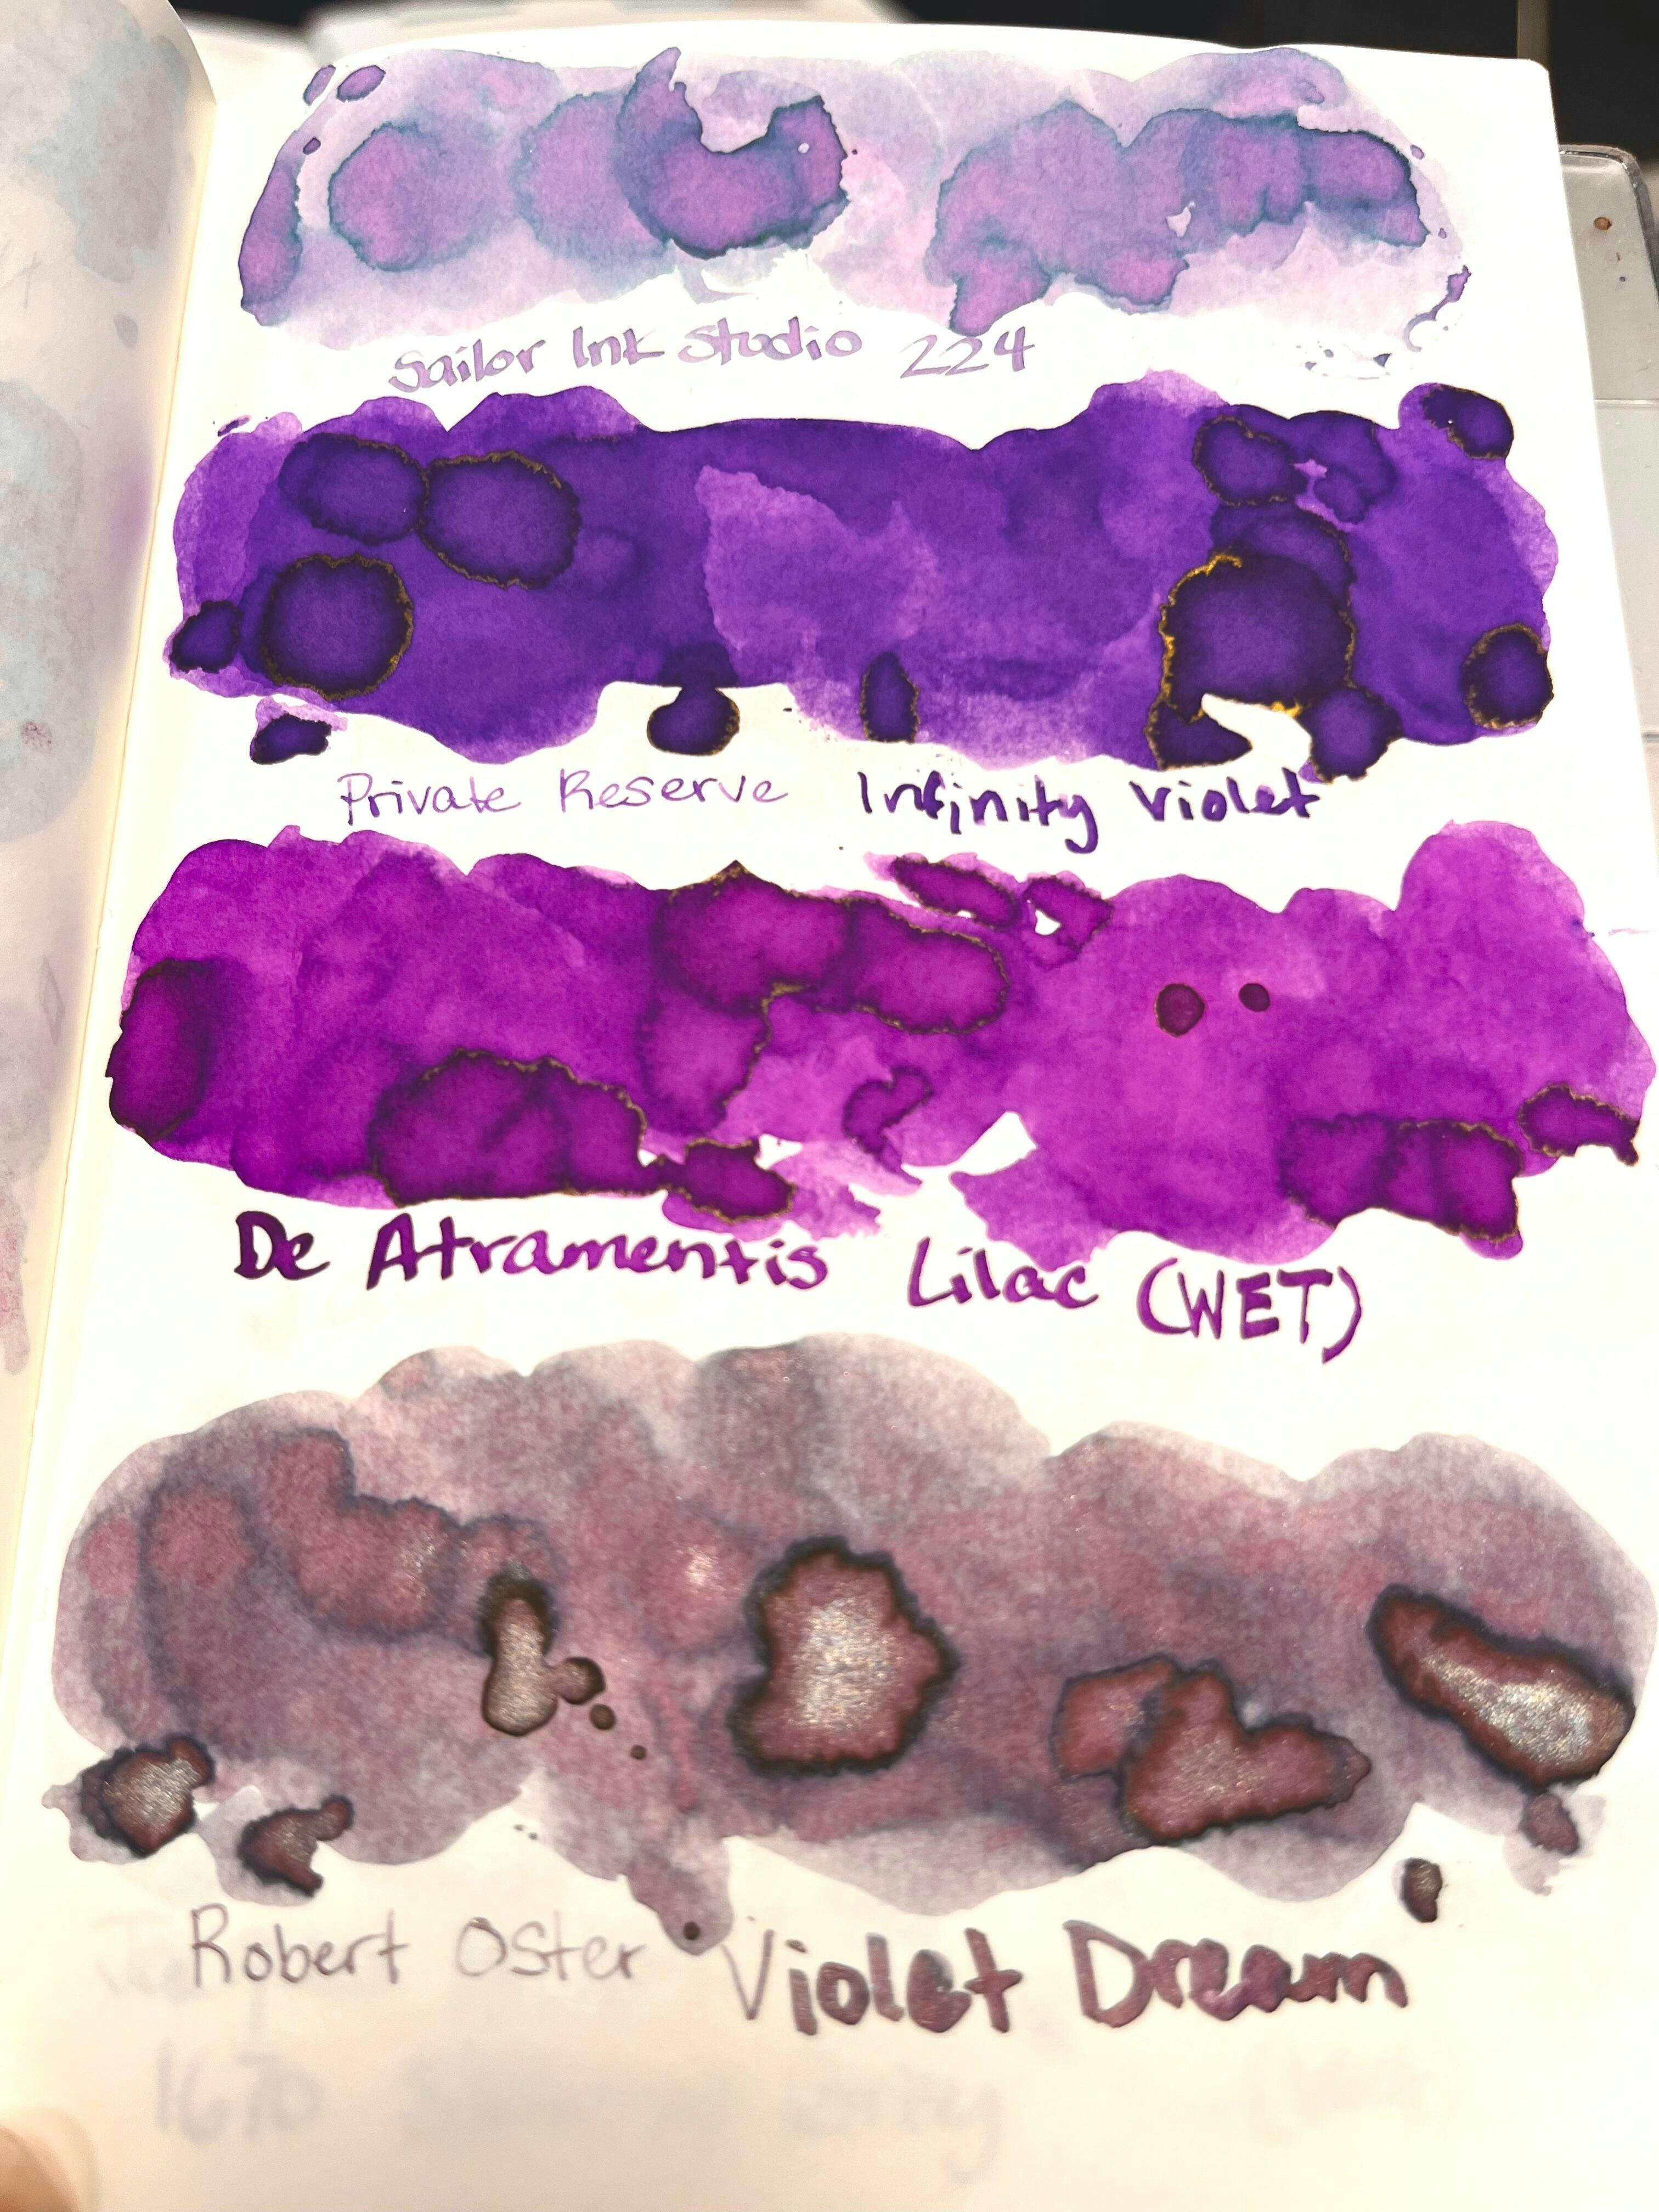 Sailor Ink Studio 224
Private Reserve Infinity Violet
De Atramentis Lilac (WET)
Robert Oster Violet Dream
1670